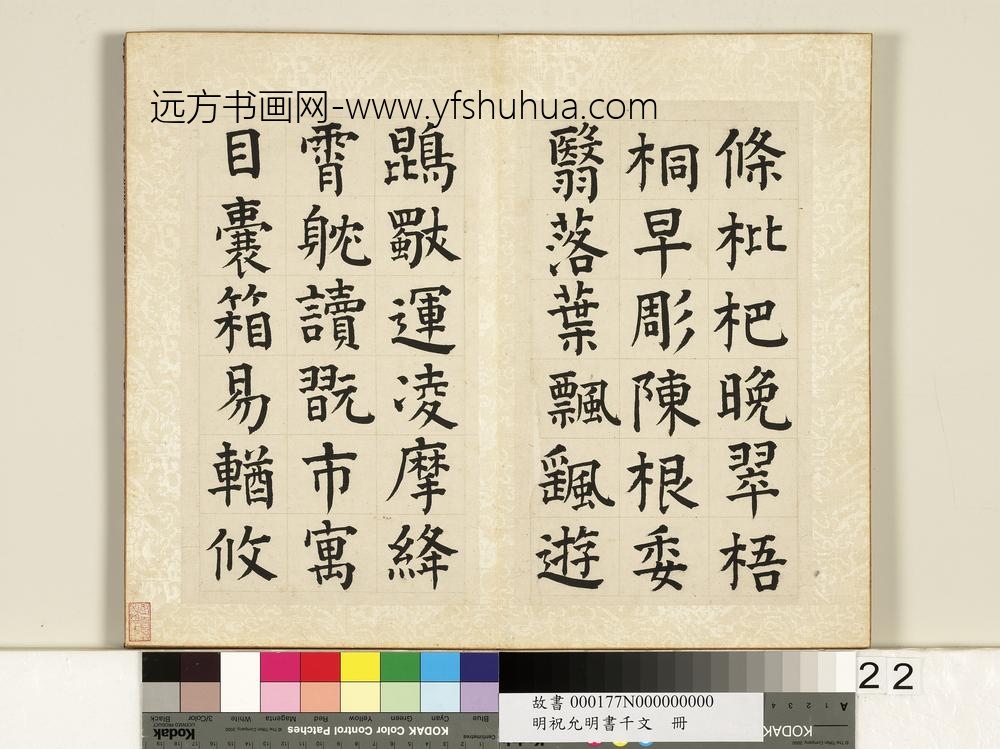 远方书画网-www.yfshuhua.com
條枇杷晚翠梧
桐早彫陳根委
翳落葉飄颻遊
鵾獨運凌摩絳
霄耽讀翫市寓
目囊箱易輶攸
22
故書 000177N000000000
明祝允明書千文 冊
KODAK Color Control Patches
Blue Cyan Green Yellow Red Magenta White 3/Color Black
Kodak
KODAK